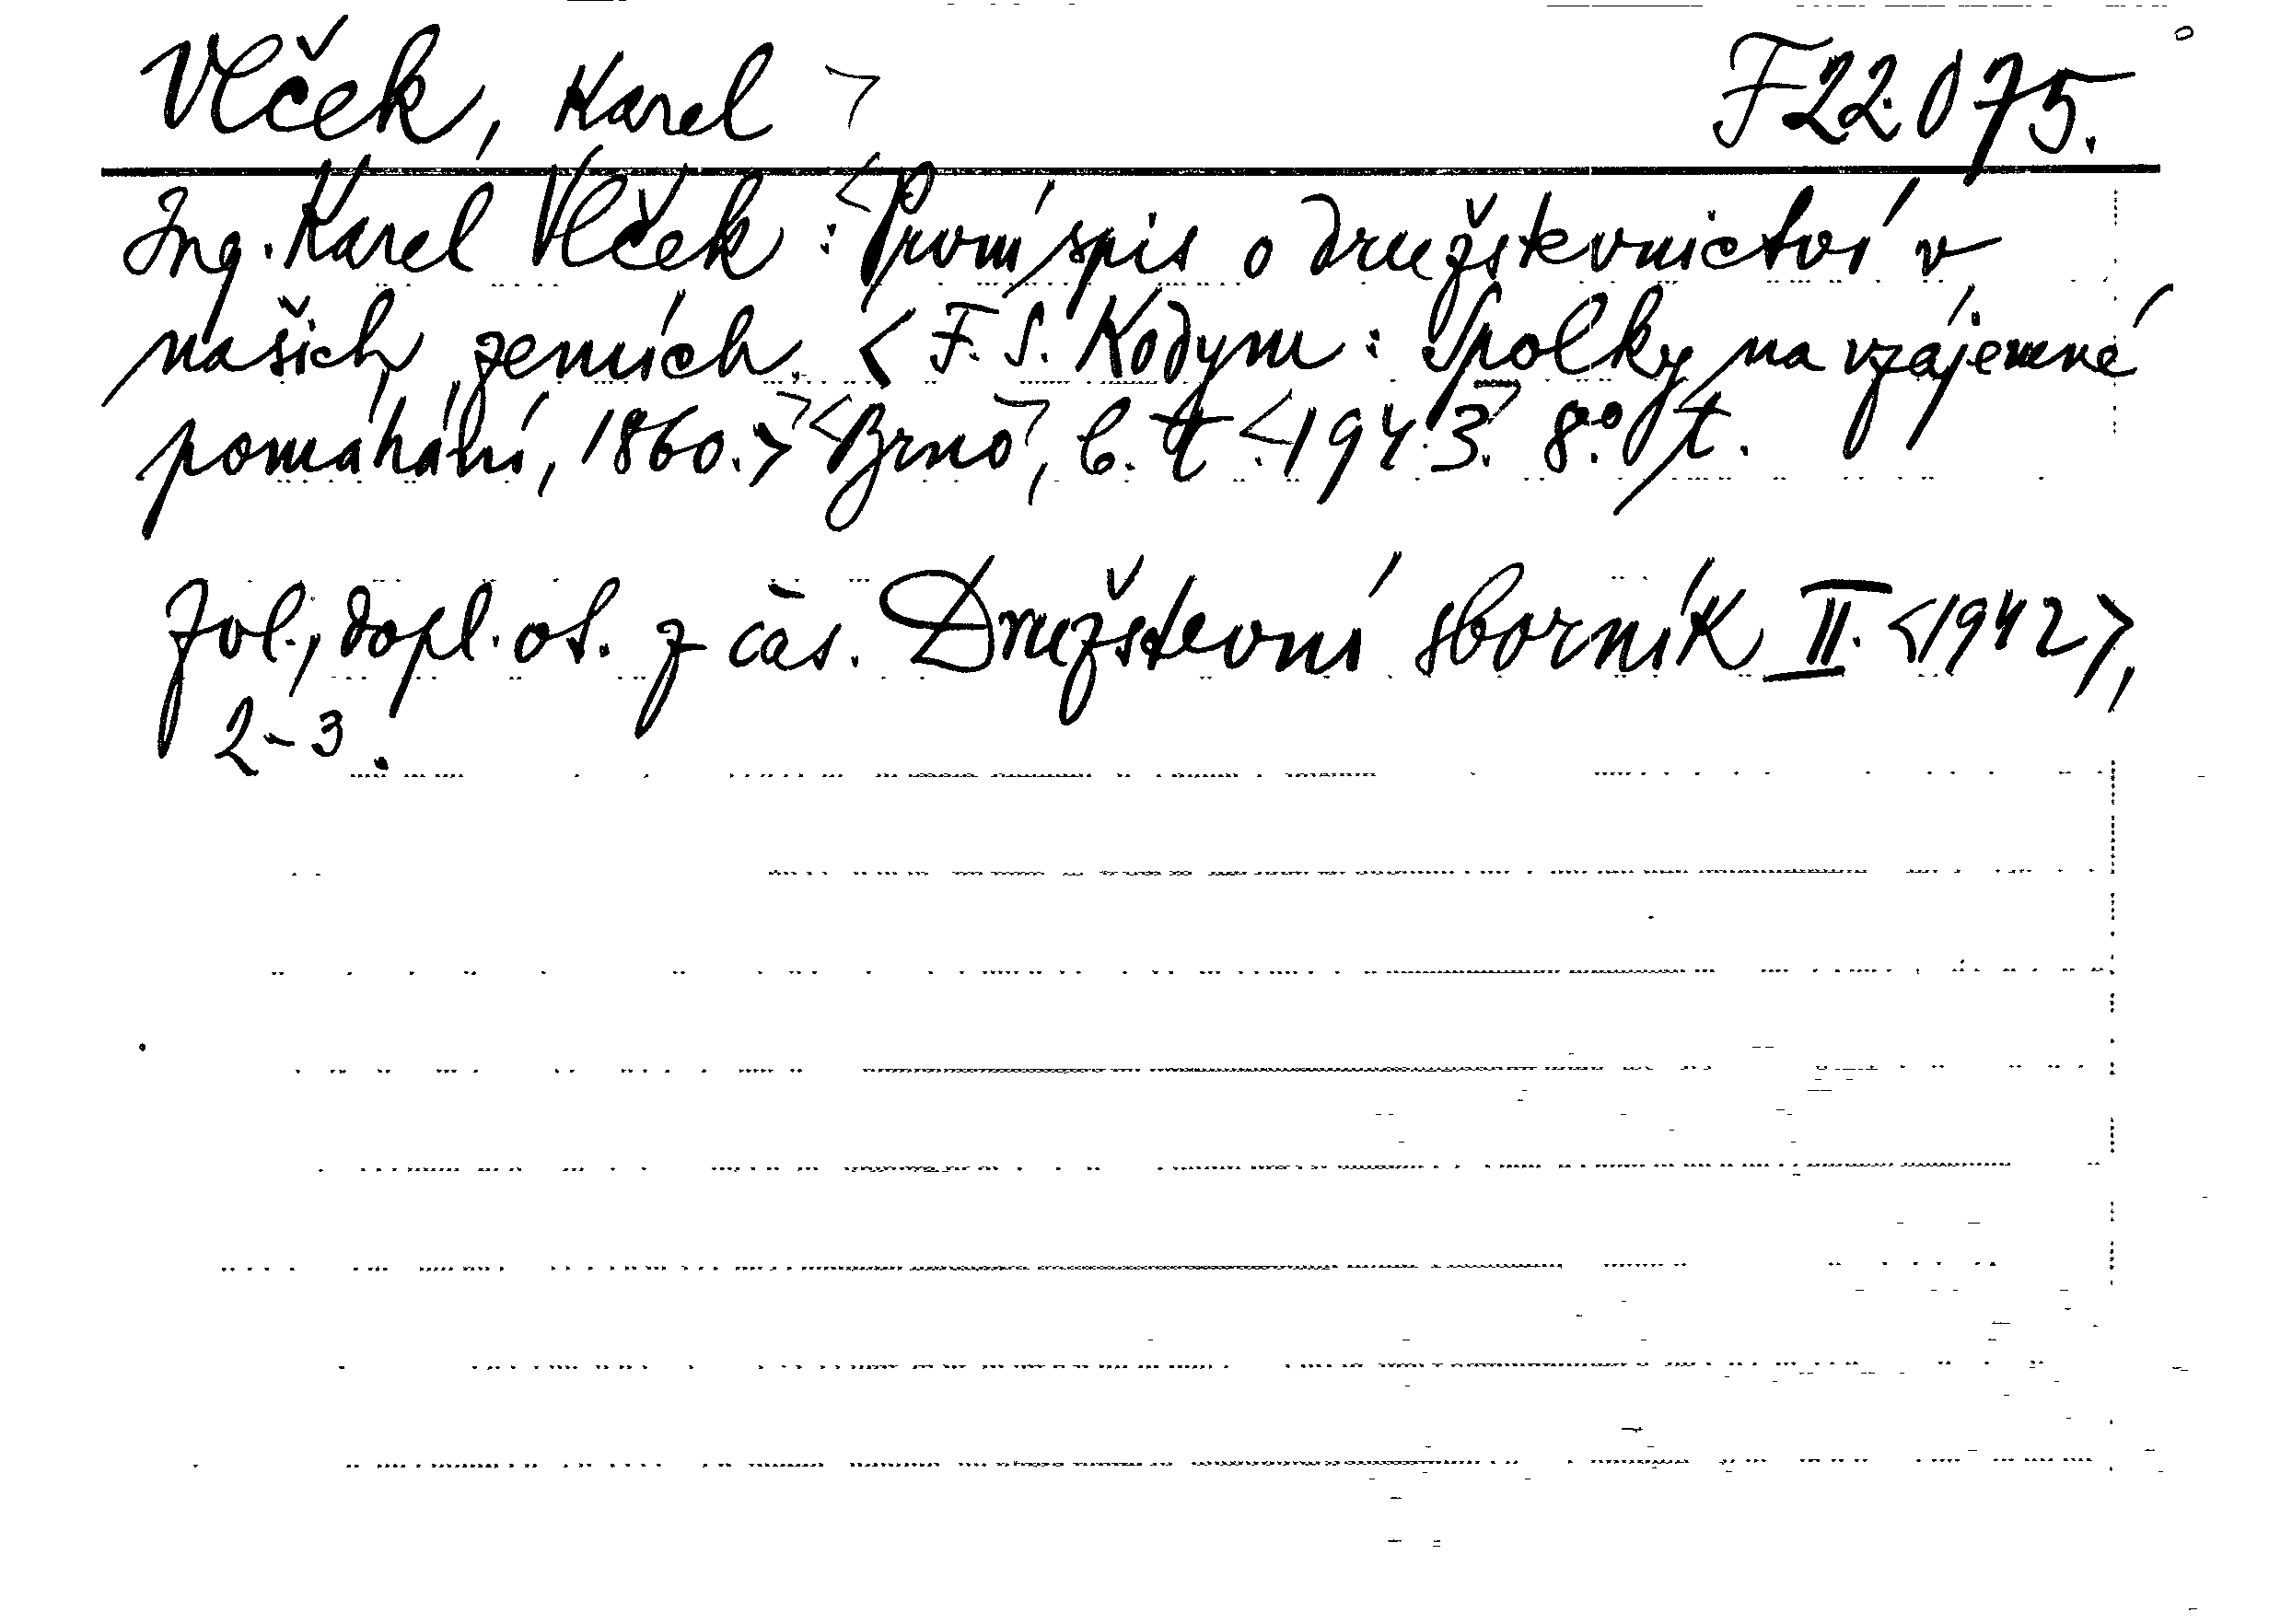 Vlček, Karel ㄱ F 22.075.
Ing. Karel Vlček : <První spis o družstevnictví v
našich zemích. < F. S. Kodym : Spolky na vzájemné
pomáhání, 1860. > ㄱ <Brnoㄱ, b. t. <194.3.ㄱ 8.° t.
Zvl., dopl. ot. z čas. Družstevní sborník II. <1942>,
2-3.